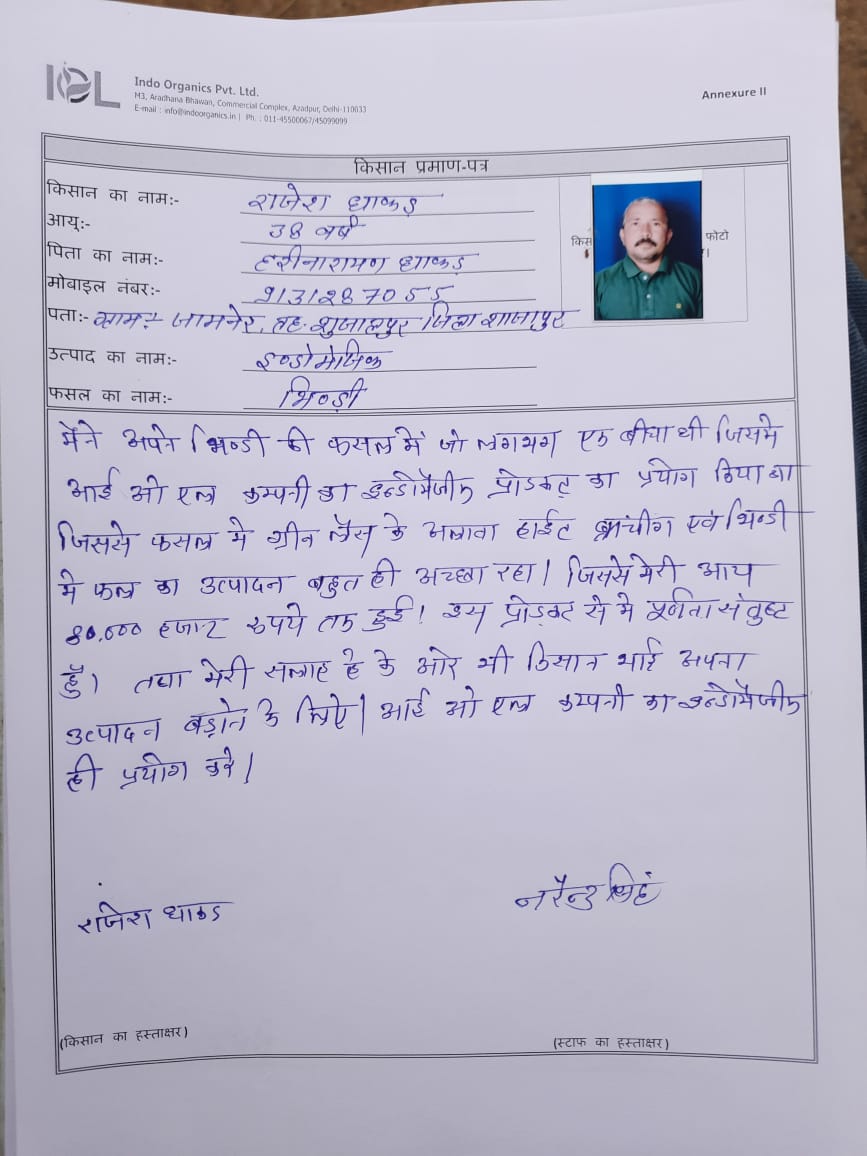 IOL
Indo Organics Pvt. Ltd.
M3, Aradhana Bhawan, Commercial Complex, Azadpur, Delhi-110033
E-mail : info@indoorganics.in | Ph. : 011-45500067/45099099
Annexure II
किसान प्रमाण-पत्र
किसान का नाम:- राजेश धाकड़
आयु:- 38 वर्ष
पिता का नाम:- हरीनारायण धाकड़
मोबाइल नंबर:- 9131287055
पता:- ग्राम:- जामनेर, तह. शुजालपुर जिला शाजापुर
उत्पाद का नाम:- इण्डोमेजिक
फसल का नाम:- भिण्ड़ी
किस
फोटो
मैने अपने भिण्डी की फसल में जो लगभग एक बीघा थी जिसमे
आई ओ एल कम्पनी का इन्डोमैजीक प्रोडक्ट का प्रयोग किया था
जिससे फसल मे ग्रीन नैस के अलावा हाईट ब्रांचीग एवं भिन्डी
मे फल का उत्पादन बहुत ही अच्छा रहा। जिससे मेरी आय
80,000 हजार रुपये तक हुई! इस प्रोडक्ट से मे पूर्णता संतुष्ट
हूँ। तथा मेरी सलाह है के ओर भी किसान भाई अपना
उत्पादन बड़ाने के लिऐ। आई ओ एल कम्पनी का इन्डोमैजीक
ही प्रयोग करे।
राजेश धाकड
नरेन्द्र सिंह
(किसान का हस्ताक्षर)
(स्टाफ का हस्ताक्षर)